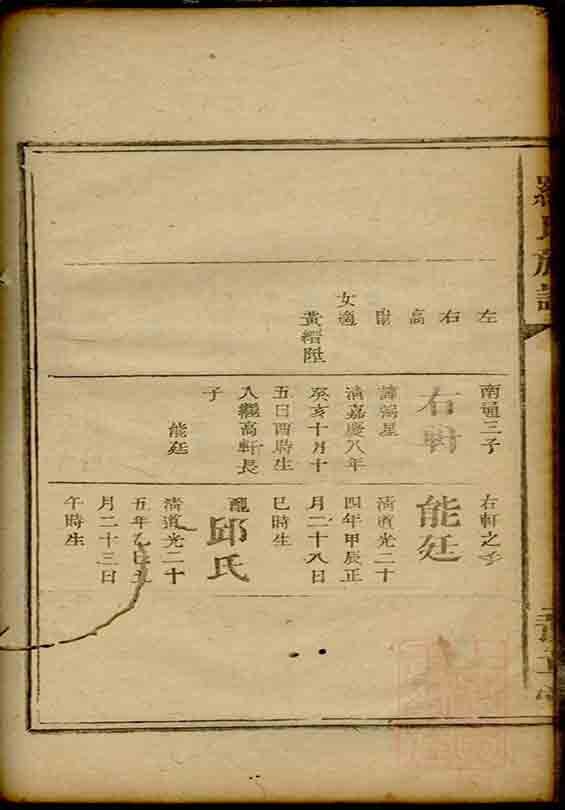 羅氏族譜
左
右
高
尉
女適
黃縉陞
南通三子
右尉
諱弼星
清嘉慶八年
癸亥十月十
五日酉時生
入繼高軒長
子
能廷
右軒之子
能廷
清道光二十
四年甲辰正
月二十八日
巳時生
配
邱氏
清道光二十
五年乙巳九
月二十三日
午時生